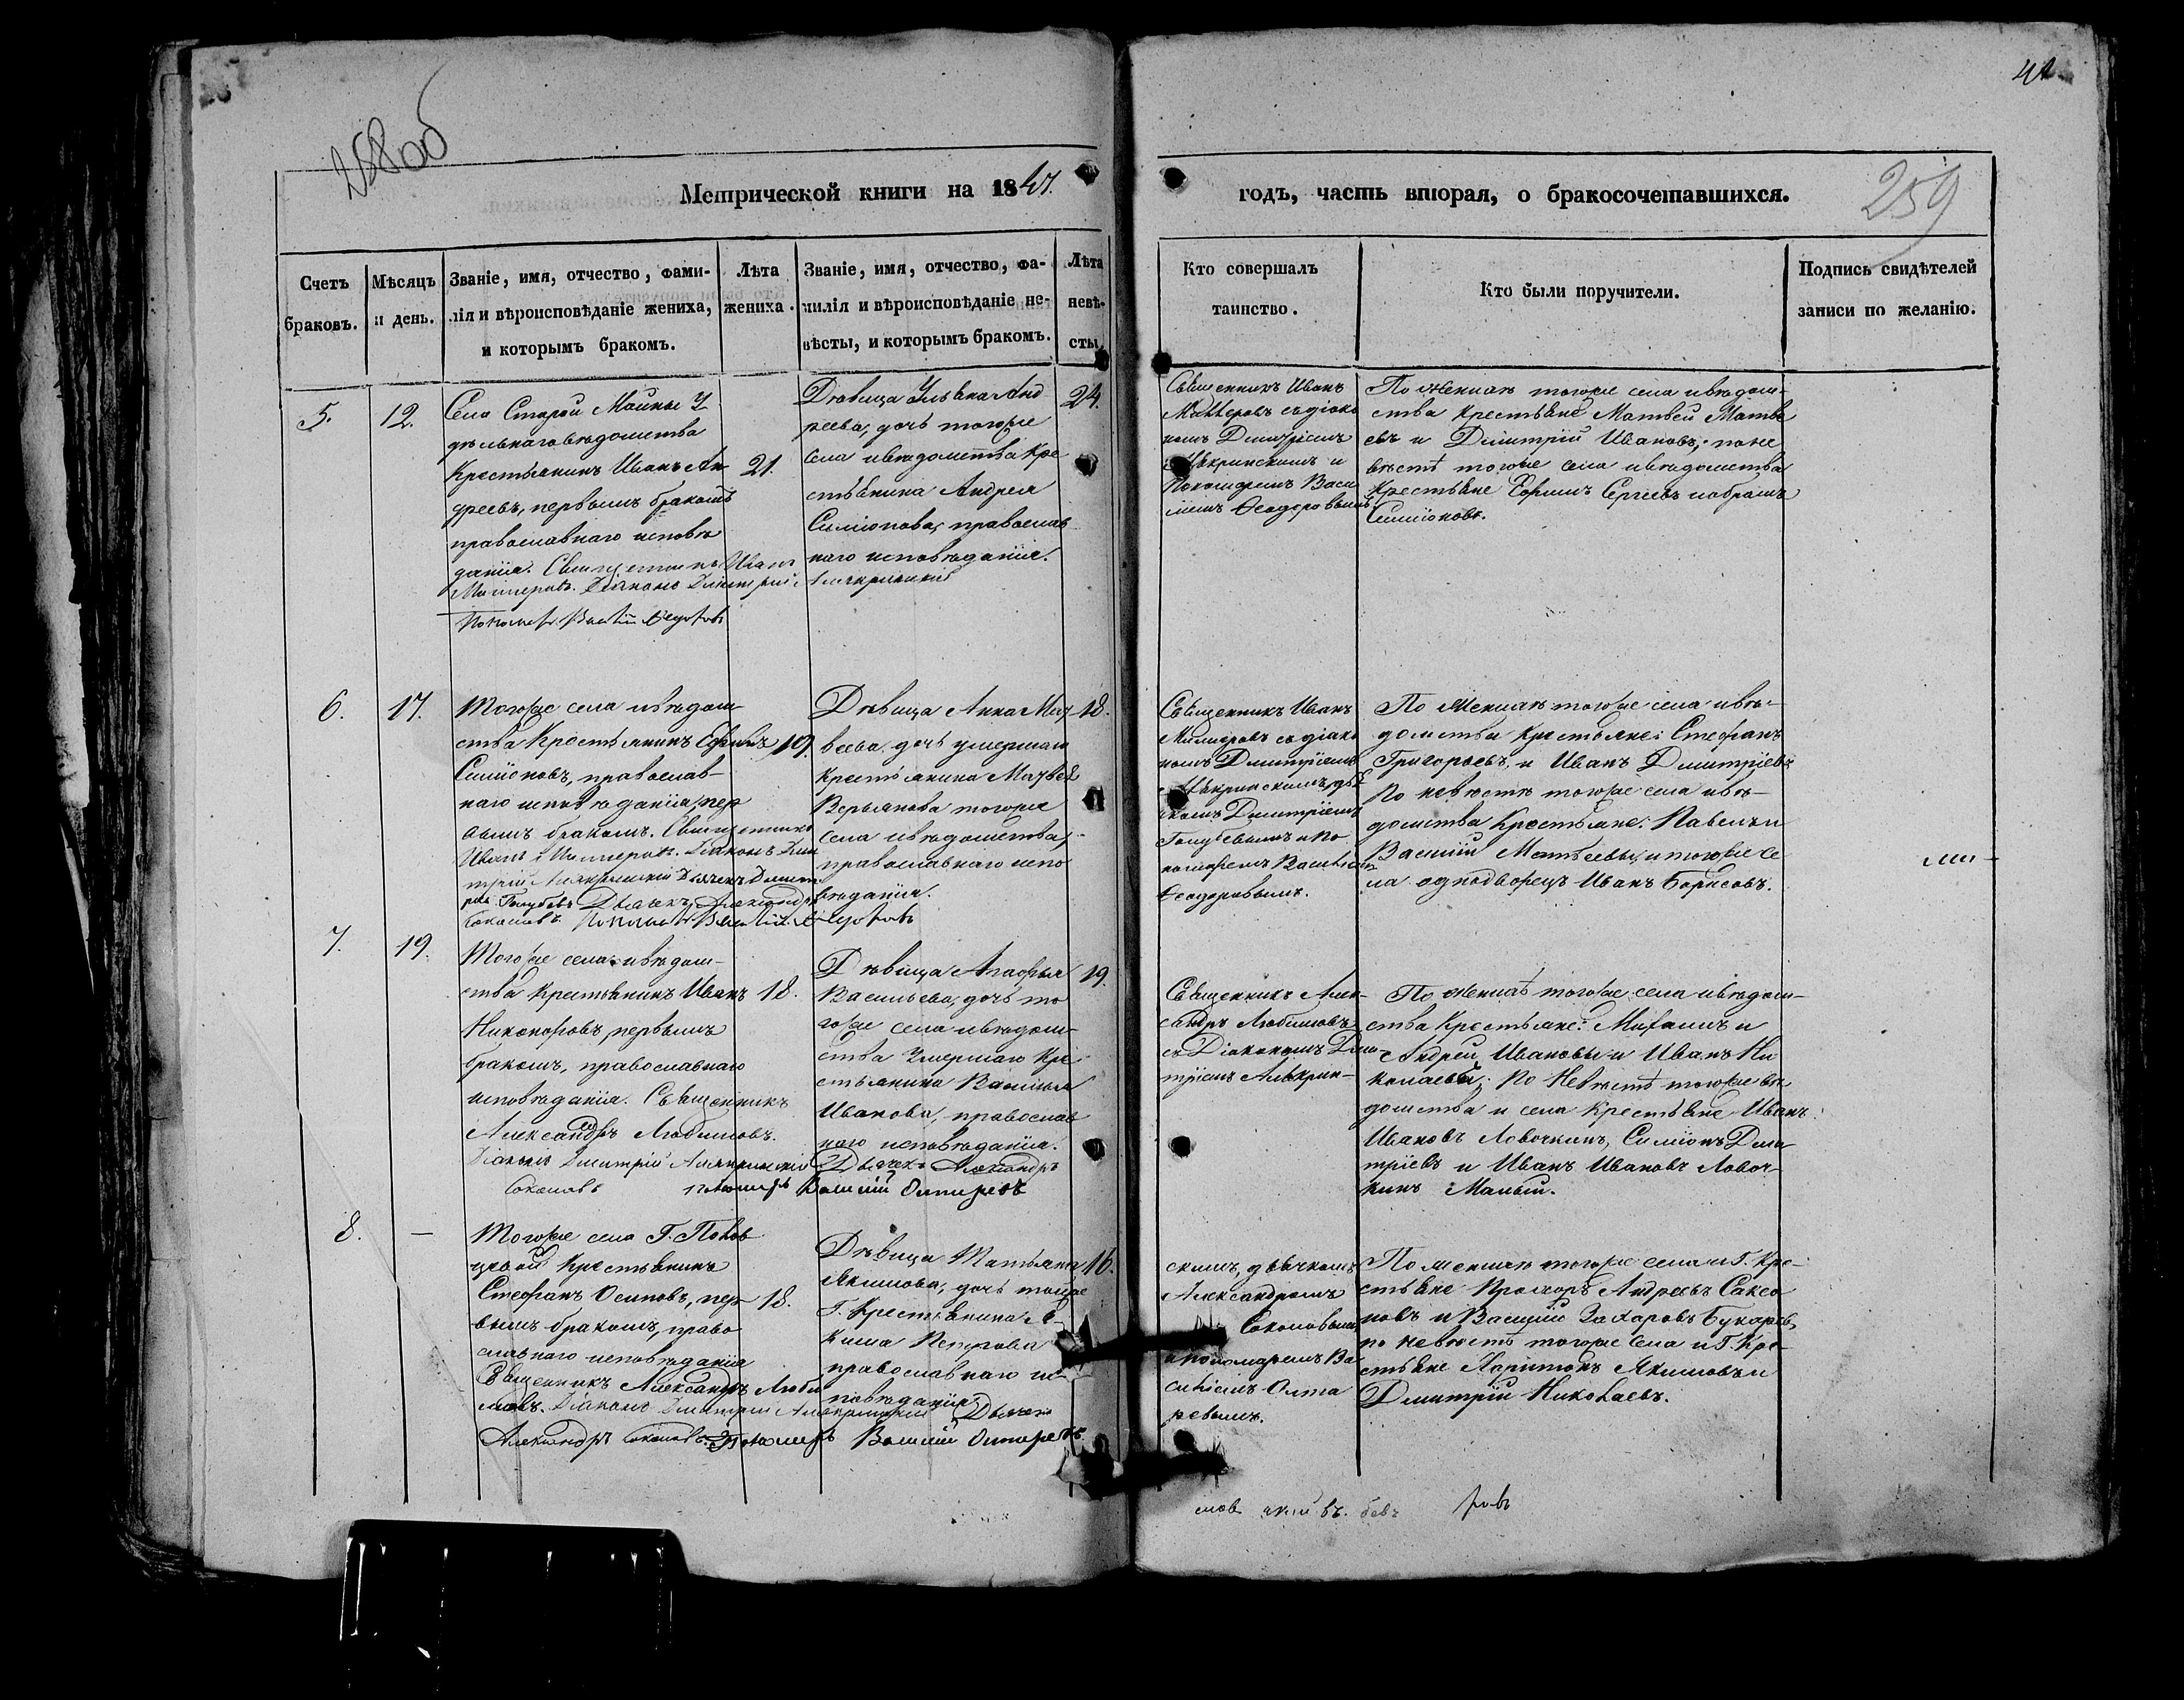 258об
41
Метрической книги на 1847.
годъ, часть вторая, о бракосочетавшихся.
259
Счетъ браковъ.
Мѣсяцъ и день.
Званіе, имя, отчество, фами-
лія и вѣроисповѣданіе жениха,
и которымъ бракомъ.
Лѣта
жениха.
Званіе, имя, отчество, фа-
милія и вѣроисповѣданіе не-
вѣсты, и которымъ бракомъ.
Лѣта
невѣ-
сты
Кто совершалъ
таинство.
Кто были поручители.
Подпись свидѣтелей
записи по желанію.
5.
12.
Села Старой Майны У
дѣльнаго вѣдомства
Крестьянинъ Иванъ Ан-
дреевъ, первымъ бракомъ
православнаго исповѣ
данія. Священникъ Иванъ
Діаконъ Димитрій
Пономарь Василій Федоровъ
21.
Дѣвица Ульяна Анд
реева, дочь тогоже
села и вѣдомства Кре
стьянина Андрея
Симіонова, православ
наго исповѣданія.
24.
Священникъ Иванъ
съ діако
номъ Димитріемъ
и
Пономаремъ Васи
ліемъ Ѳеодоровымъ
По женихѣ тогоже села и вѣдом-
ства крестьяне Матвей Матвѣ
евъ и Димитрій Ивановъ; по не
вѣстѣ тогоже села и вѣдомства
Крестьяне Ефимъ Сергѣевъ и Абрамъ
Симіоновъ.
6.
17.
Тогоже села и вѣдом-
ства Крестьянинъ Ефимъ
Симіоновъ, православ-
наго исповѣданія, пер
вымъ бракомъ. Священникъ
Иванъ Діаконъ Дими
трій Дьячекъ Димит
рій Голубевъ Дьячекъ Александръ
Соколовъ Пономарь Василій Федоровъ
19.
Дѣвица Анна Мат
веева, дочь умершаго
крестьянина Матвея
Верьянова тогоже
села и вѣдомства,
православнаго испо
вѣданія.
18.
Священникъ Иванъ
съ діако
номъ Димитріемъ
дья
чкомъ Димитріемъ
Голубевымъ и по
номаремъ Василіемъ
Ѳеодоровымъ.
По женихѣ тогоже села и вѣ-
домства крестьяне: Стефанъ
Григорьевъ, и Иванъ Дмитріевъ
По невѣстѣ тогоже села и вѣ-
домства Крестьяне: Павелъ и
Василій Матвеевы, и тогоже се
ла однодворецъ Иванъ Борисовъ.
7.
19.
Тогоже села и вѣдом-
ства крестьянинъ Иванъ
Никоноровъ, первымъ
бракомъ, православнаго
исповѣданія. Священникъ
Александръ Любимовъ.
Діаконъ Дмитрій Дьячекъ Александръ
Соколовъ пономарь Василій
18.
Дѣвица Агафья
Васильева, дочь то
гоже села и вѣдом-
ства умершаго Кре-
стьянина Василья
Иванова, православ
наго исповѣданія.
19.
Священникъ Алек-
сандръ Любимовъ
съ Діакономъ Дми-
тріемъ
По женихѣ тогоже села и вѣдом-
ства Крестьяне: и
Андрей Ивановы и Иванъ Ни
колаевъ; По Невѣстѣ тогоже вѣ
домства и села Крестьяне Иванъ
Ивановъ Ловочкинъ, Симіонъ Дми-
тріевъ и Иванъ Ивановъ Ловоч-
кинъ Малый.
8.
—
Тогоже села Г.
Крестьянинъ
Стефанъ Осиповъ, пер
вымъ бракомъ, право
славнаго исповѣданія
Священникъ Александръ Люби
мовъ. Діаконъ Дмитрій Дьячекъ
Александръ Соколовъ. Пономарь Василій
18.
Дѣвица Татьяна
Якимова, дочь тогоже
Г. Крестьянина Я-
кима Петрова
православнаго ис
повѣданія
16.
скимъ, дьячкомъ
Александромъ
Соколовымъ
и пономаремъ Ва
силіемъ
По женихѣ тогоже села и Г. Кре-
стьяне Прохоръ Андреевъ
и Василій Захаровъ
по невѣстѣ тогоже села и Г. Кре-
стьяне Харитонъ Якимовъ и
Дмитрій Николаевъ.